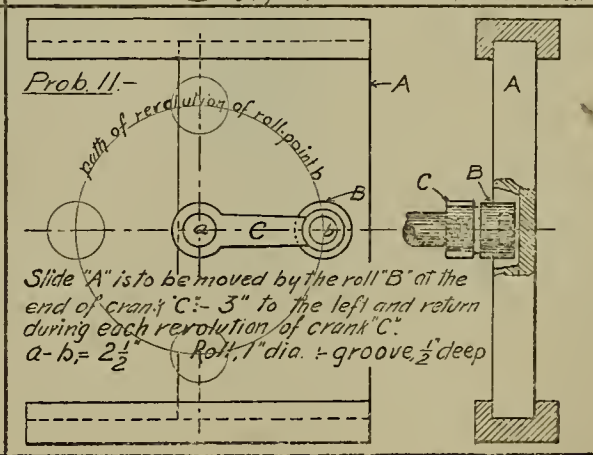 Prob. 11.-
A
A
path of revolution of roll-point b
B
C
B
a
C
b
Slide "A" is to be moved by the roll "B" at the
end of crank "C":- 3" to the left and return
during each revolution of crank "C".
a-b,= 2 1/2" Roll, 1" dia. :- groove, 1/2" deep